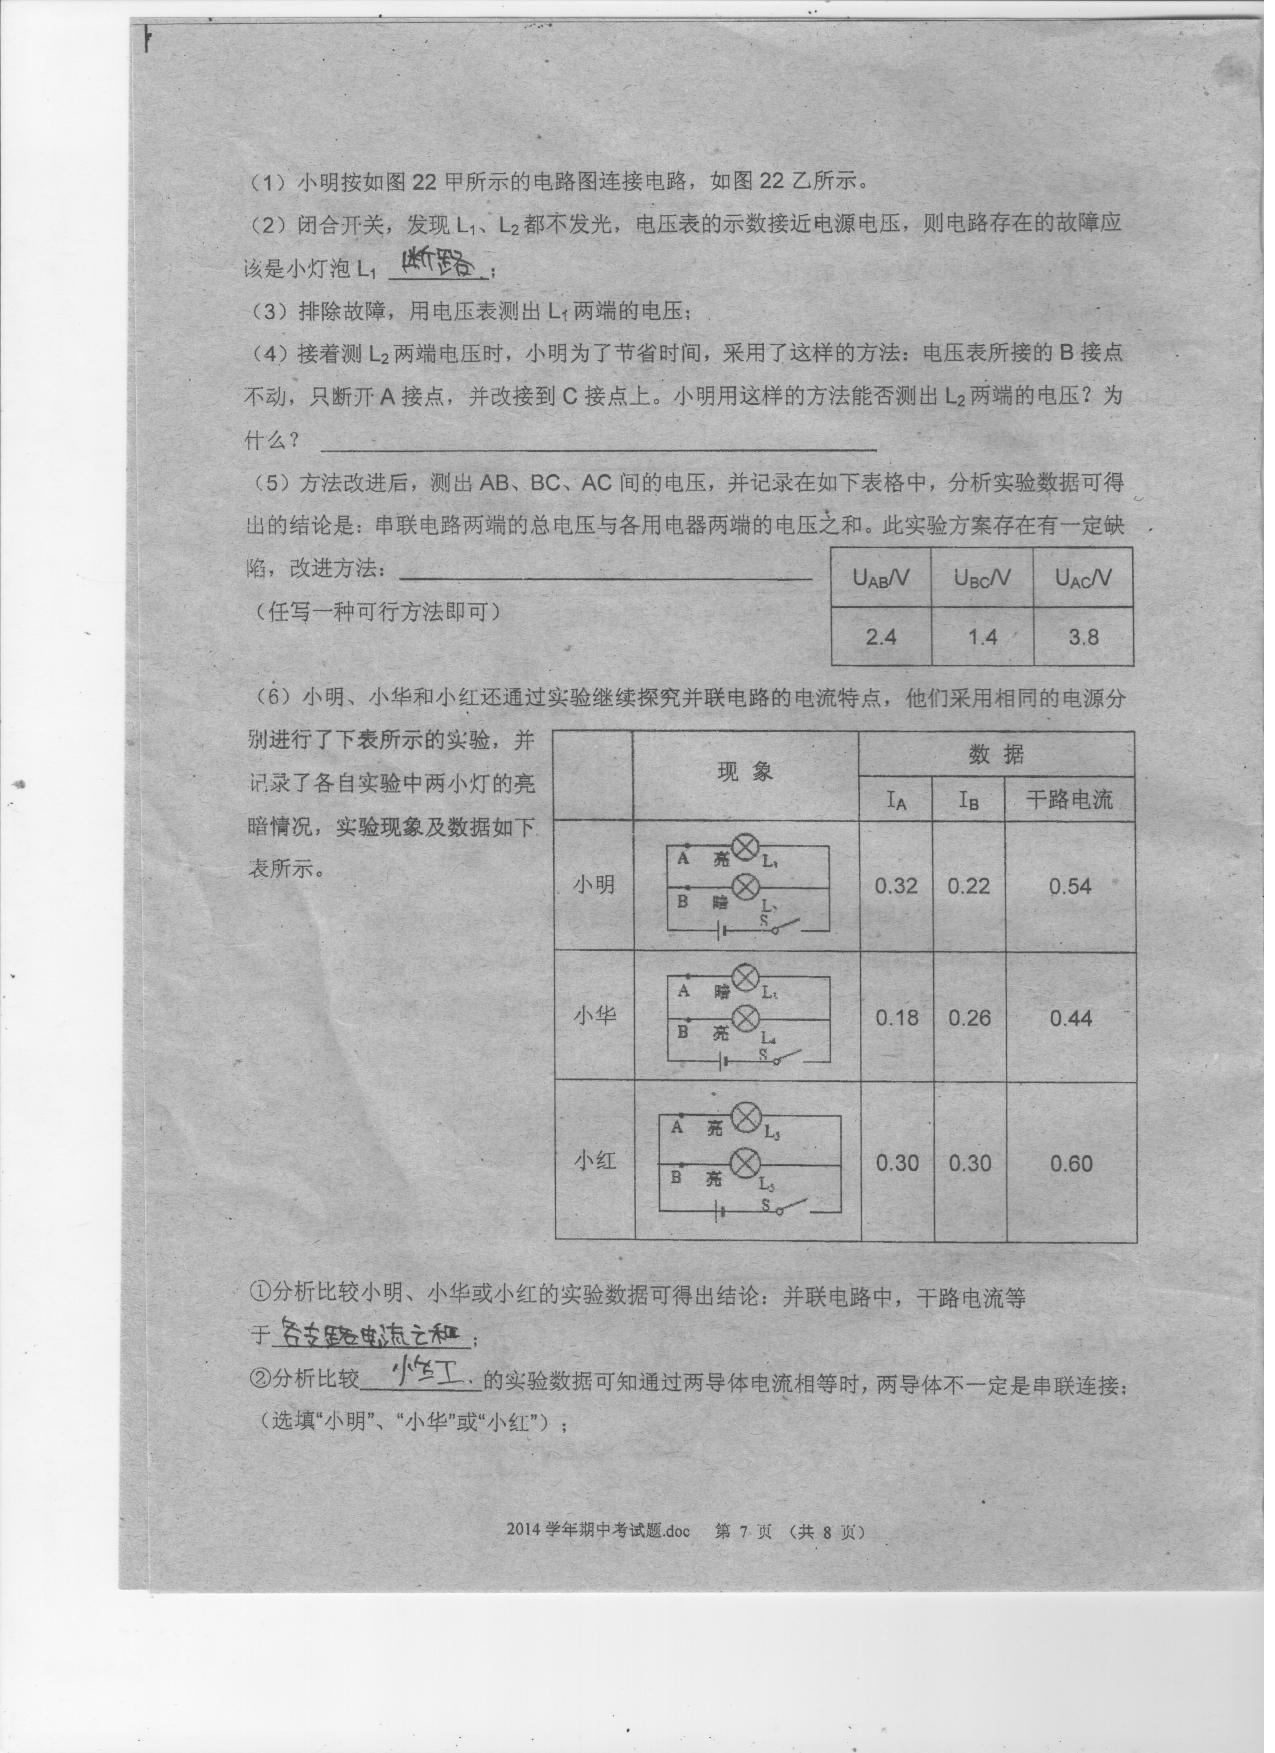 （1）小明按如图 22 甲所示的电路图连接电路，如图 22 乙所示。
（2）闭合开关，发现 L₁、L₂ 都不发光，电压表的示数接近电源电压，则电路存在的故障应
该是小灯泡 L₁ 断路；
（3）排除故障，用电压表测出 L₁ 两端的电压；
（4）接着测 L₂ 两端电压时，小明为了节省时间，采用了这样的方法：电压表所接的 B 接点
不动，只断开 A 接点，并改接到 C 接点上。小明用这样的方法能否测出 L₂ 两端的电压？为
什么？
（5）方法改进后，测出 AB、BC、AC 间的电压，并记录在如下表格中，分析实验数据可得
出的结论是：串联电路两端的总电压与各用电器两端的电压之和。此实验方案存在有一定缺
陷，改进方法：
（任写一种可行方法即可）
UAB/V UBC/V UAC/V
2.4 1.4 3.8
（6）小明、小华和小红还通过实验继续探究并联电路的电流特点，他们采用相同的电源分
别进行了下表所示的实验，并
记录了各自实验中两小灯的亮
暗情况，实验现象及数据如下
表所示。
现 象 数 据
IA IB 干路电流
小明 0.32 0.22 0.54
A 亮 L₁
B 暗
S
小华 0.18 0.26 0.44
A 暗
B 亮 L₄
S
小红 0.30 0.30 0.60
A 亮
B 亮 L₅
S
①分析比较小明、小华或小红的实验数据可得出结论：并联电路中，干路电流等
于各支路电流之和；
②分析比较小红的实验数据可知通过两导体电流相等时，两导体不一定是串联连接；
（选填“小明”、“小华”或“小红”）；
2014 学年期中考试题.doc 第 7 页 （共 8 页）